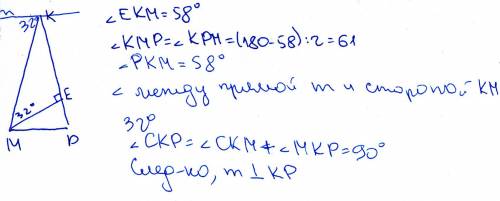 m K
32°
∠EKM=58°
∠KMP=∠KPM=(180-58):2=61
∠PKM=58°
32° E
∠ между прямой m и стороной KM
32°
M P
∠CKP=∠CKM+∠MKP=90°
След-но, m⊥KP